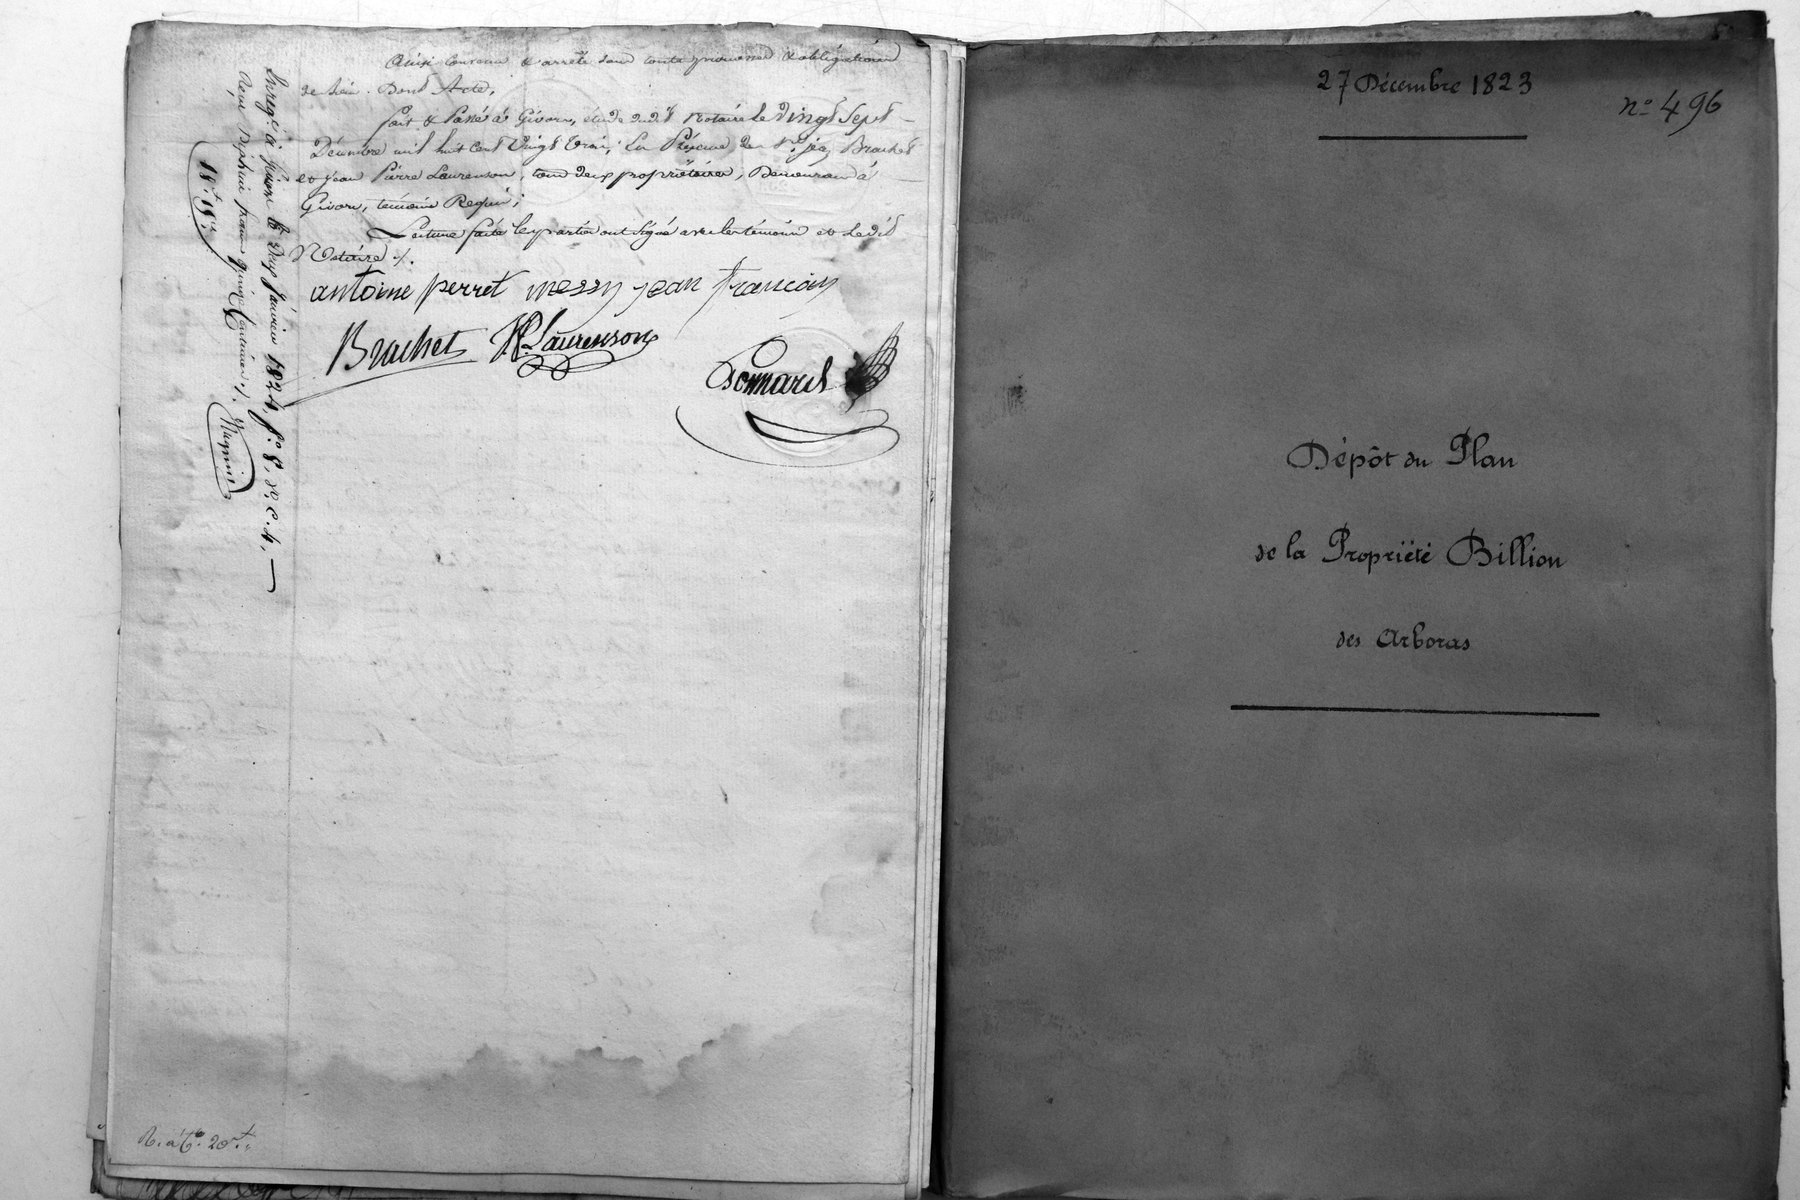 Ainsi convenu & arrêté sous toutes promesses & obligations
de Lien. Dont Acte,
fait & Passé à Givors, étude dudit Notaire Le Vingt Sept
Décembre mil huit Cent Vingt trois; En Présence des Srs. Brachet
et jean Pierre Laurenson, tous deux propriétaires, Demeurand à
Givors, témoins Requis;
Lecture faite les parties ont signé avec les témoins et Ledit
Notaire ./.
antoine perret messy jean francois
Brachet JP Laurenson
Bonnard
Enregé. à Givors le Deux janvier 1824, fo. 8, Vo. C. 4,
Reçu francs quinze Centimes ./.
Magnin
R. à
27 Décembre 1823
no. 496
Dépôt du Plan
de la Propriëté Billion
des Arboras